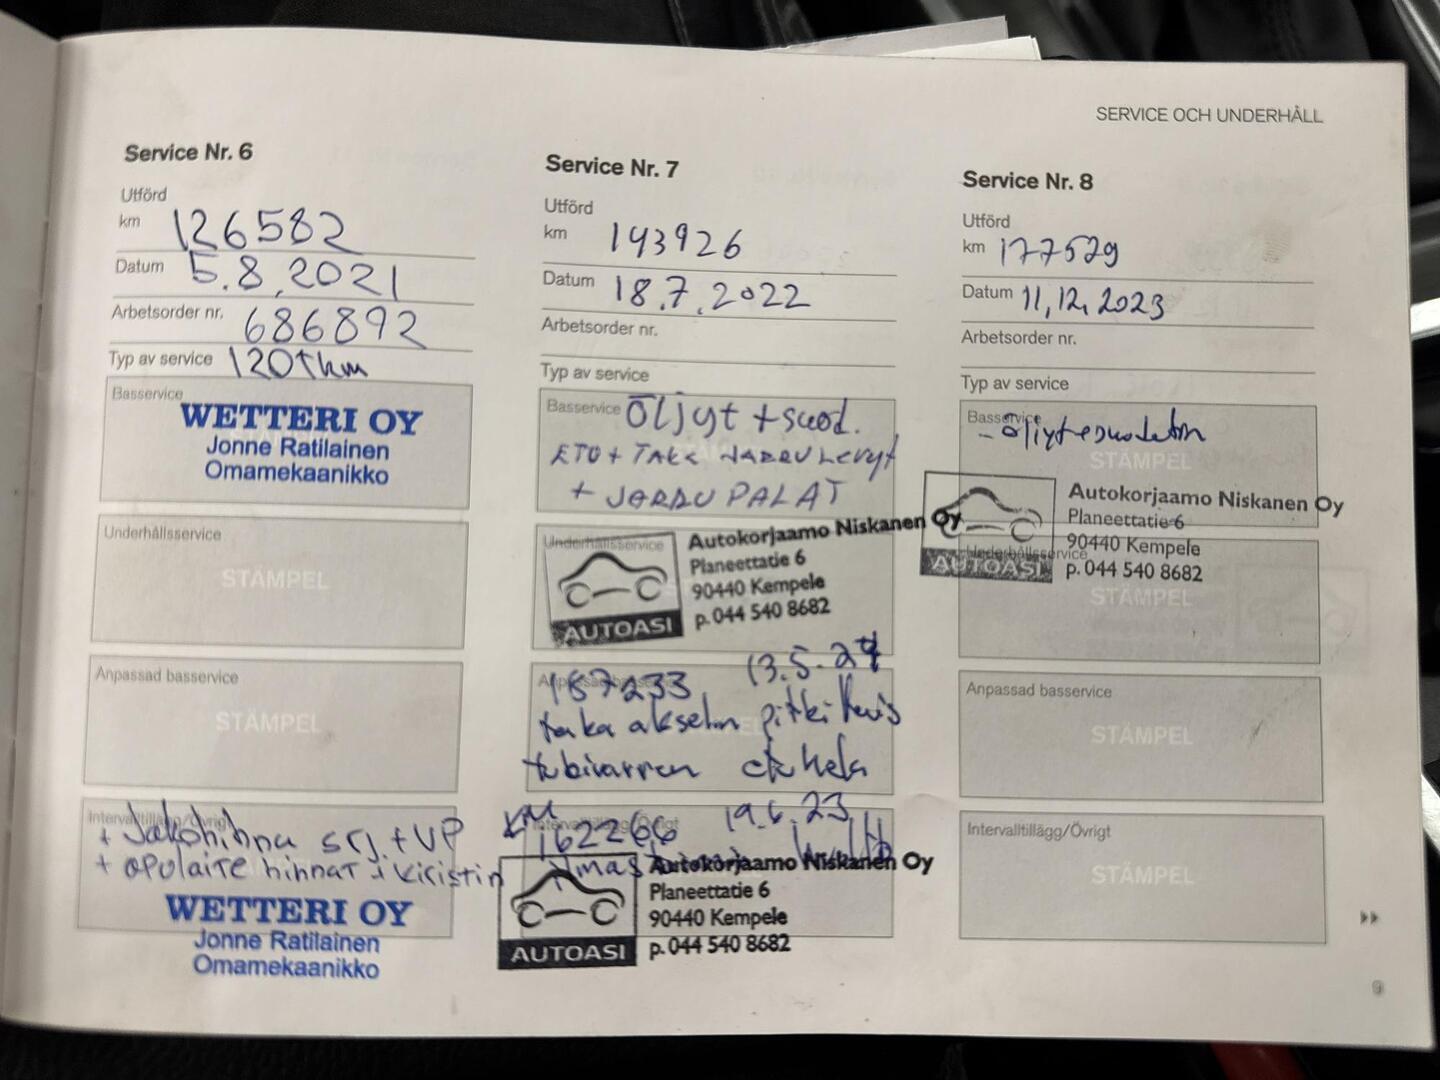 SERVICE OCH UNDERHÅLL
Service Nr. 6
Utförd
km 126582
Datum 5.8.2021
Arbetsorder nr. 686892
Typ av service 120tkm
Basservice
WETTERI OY
Jonne Ratilainen
Omamekaanikko
Underhållsservice
STÄMPEL
Anpassad basservice
STÄMPEL
Intervalltillägg/Övrigt
+ Jakohihna srj. + VP
+ APULAITE hihnat + kiristin
WETTERI OY
Jonne Ratilainen
Omamekaanikko
Service Nr. 7
Utförd
km 143926
Datum 18.7.2022
Arbetsorder nr.
Typ av service
Basservice Öljyt + suod.
ETU + TAKA JARRULevyt
+ JARRU PALAT
Underhållsservice
Autokorjaamo Niskanen Oy
Planeettatie 6
90440 Kempele
p. 044 540 8682
AUTOASI
Anpassad basservice
187233 13.5.24
taka akselin pitkittäis
tukivarren etuhela
Intervalltillägg/Övrigt
km 162266 19.6.23
Autokorjaamo Niskanen Oy
Planeettatie 6
90440 Kempele
p. 044 540 8682
AUTOASI
Service Nr. 8
Utförd
km 177529
Datum 11.12.2023
Arbetsorder nr.
Typ av service
Basservice
- öljyt + suodatin
STÄMPEL
Autokorjaamo Niskanen Oy
Planeettatie 6
90440 Kempele
p. 044 540 8682
AUTOASI
Underhållsservice
STÄMPEL
Anpassad basservice
STÄMPEL
Intervalltillägg/Övrigt
STÄMPEL
9